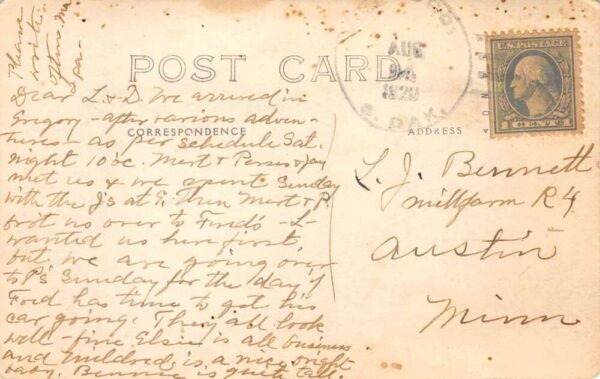 Please
write.
Often Ma
& pa—
POST CARD
CORRESPONDENCE
ADDRESS
AUG
1920
S. DAK.
U.S. POSTAGE
1 CENT 1
Dear L & D. We arrived in
Gregory - after various adven-
tures - as per schedule Sat.
night 10 oc. Mert & Perses & Jay
met us & we spent Sunday
with the J's at G. Then Mert & P.
brot us over to Fred's - L -
wanted us here first,
but we are going over
to P's Sunday for the day if
Ford has time to get his
car going. They all look
well - fine. Elsie is all business
and Mildred is a nice, bright
baby. Bennie is quite tall.
L. J. Bennett
millfarm R4
Austin
Minn